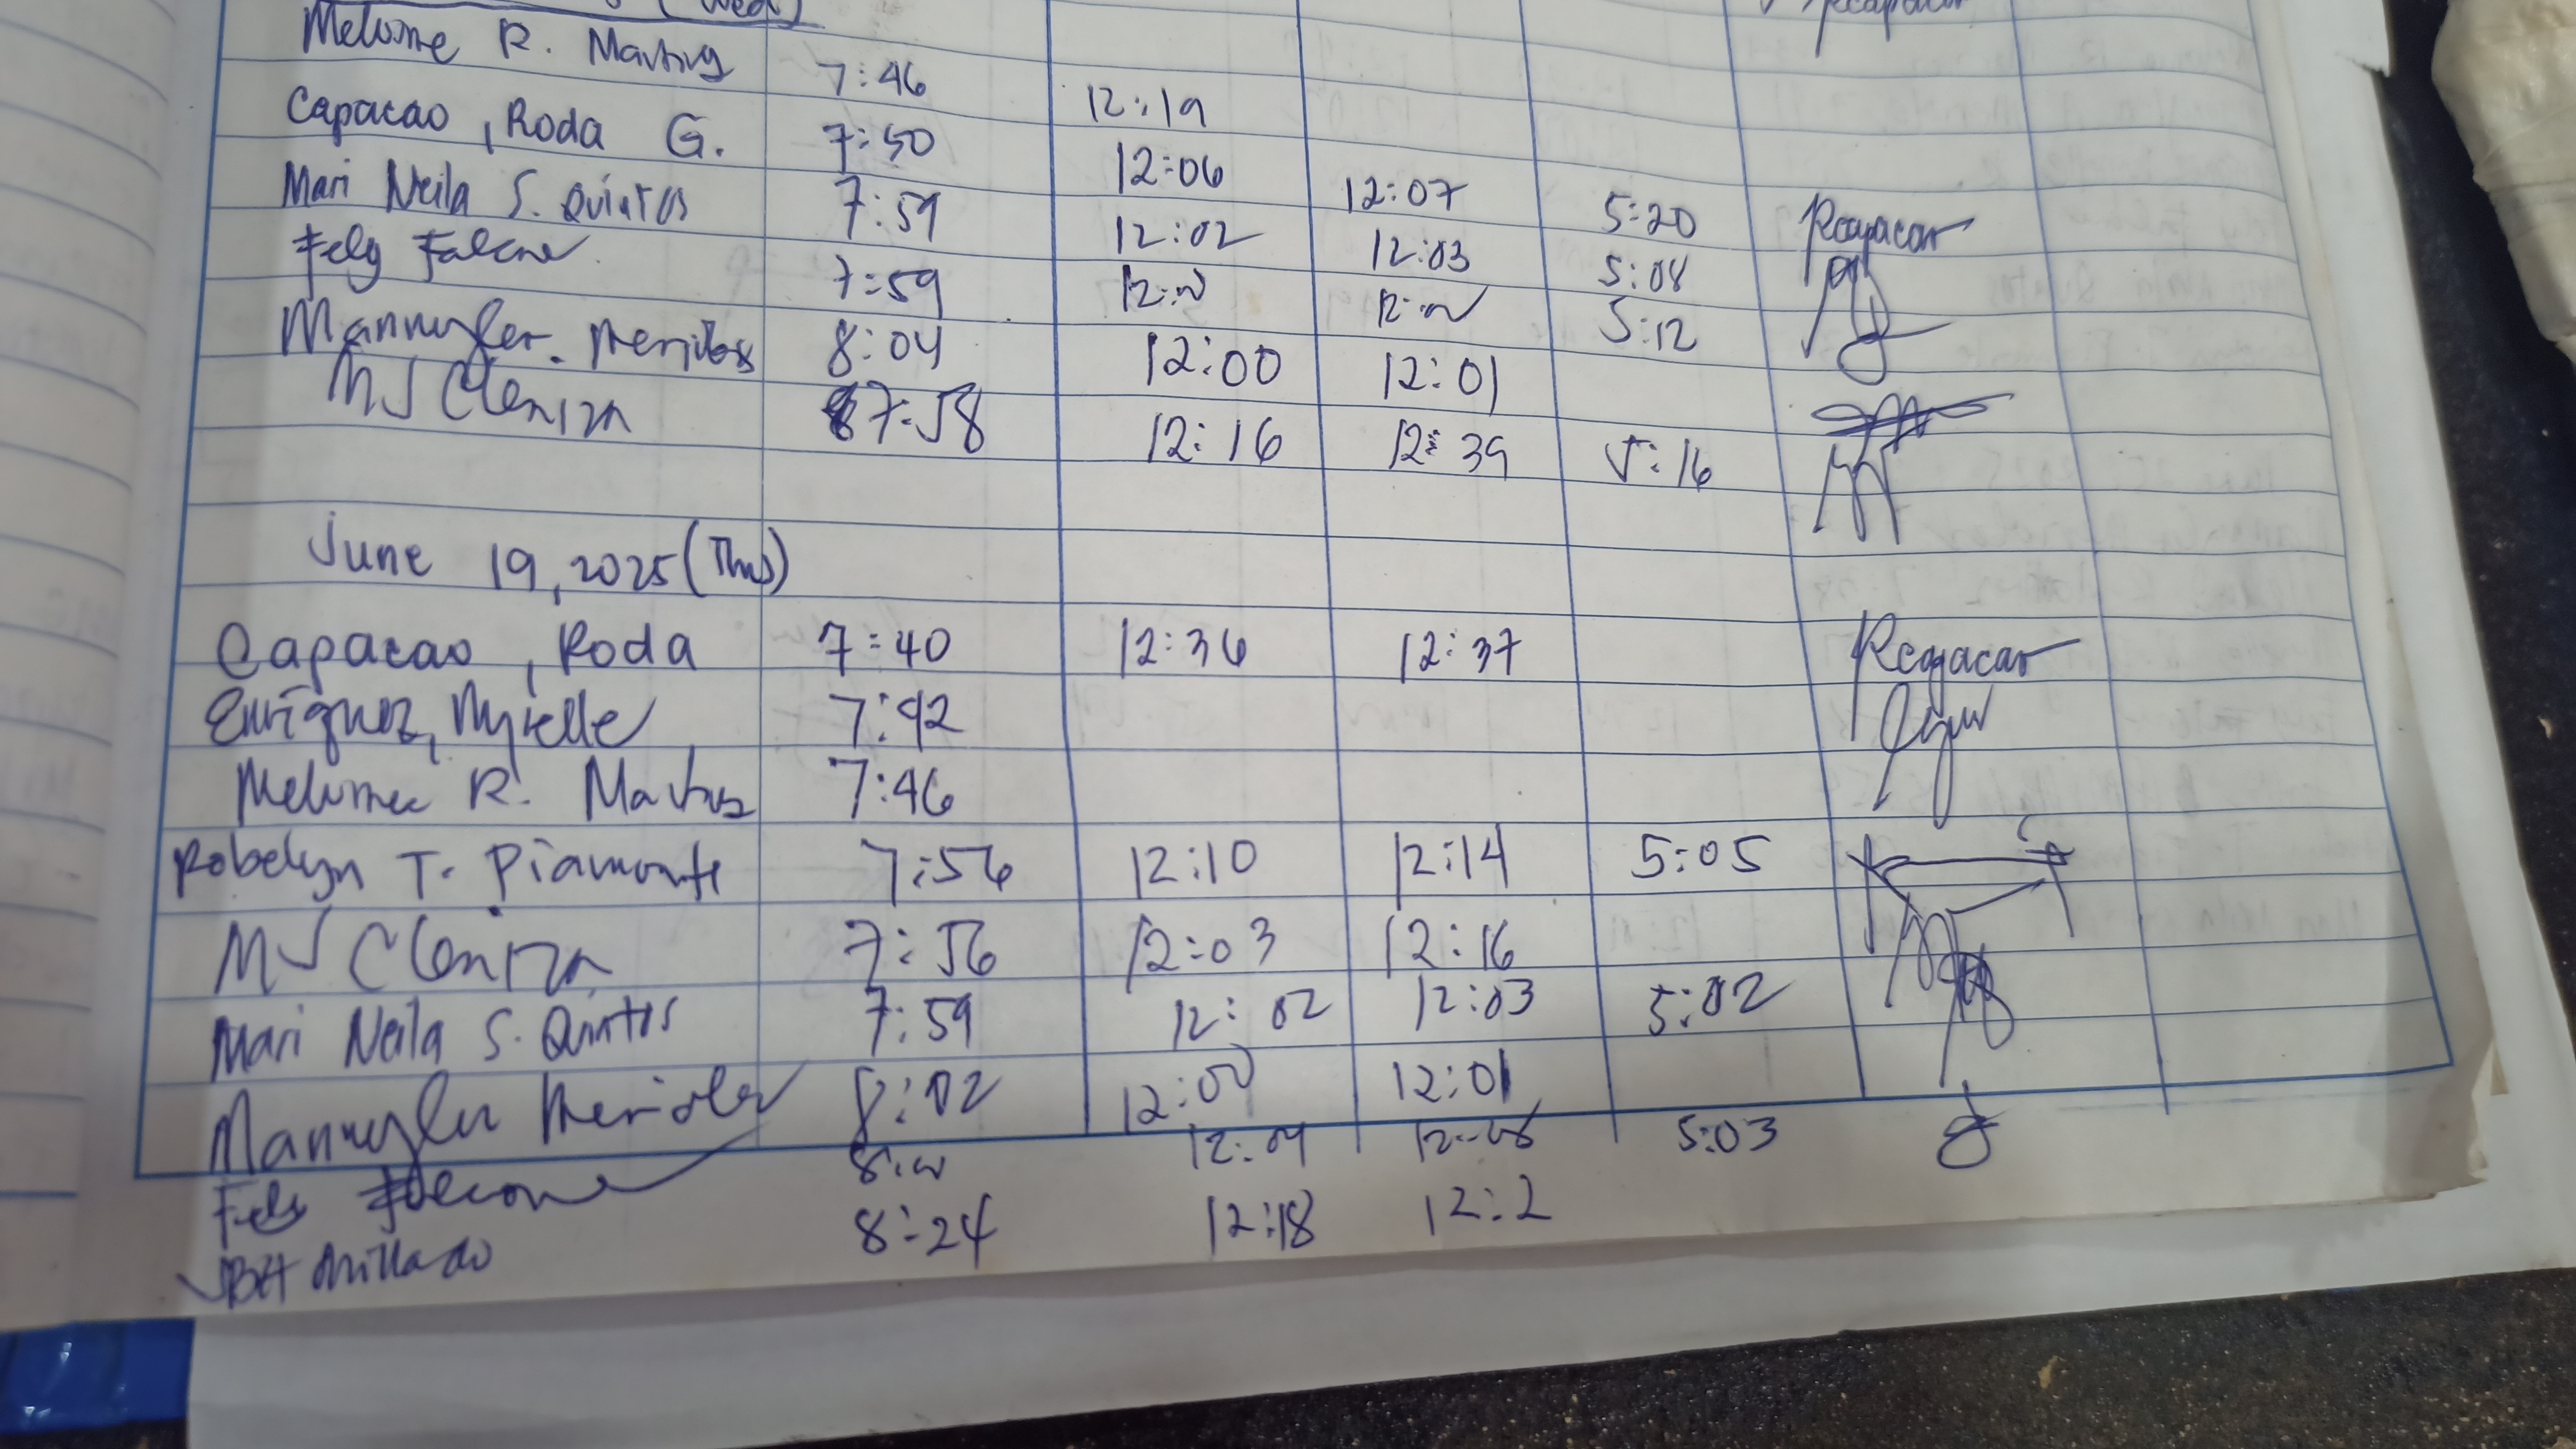 (Wed)
Melome R. Martus 7:46 12:19
Capacao, Roda G. 7:50 12:06 12:07 5:20 Rcapacao
Mari Neila S. Quintos 7:59 12:02 12:03 5:08
Fely Falcone 7:59 12:00 5:12
Mannyler. Meriolas 8:04 12:00 12:01
MJ Cleniza 7:58 12:16 12:39 5:16
June 19, 2025 (Thus)
Capacao, Roda 7:40 12:36 12:37 Rcapacao
Enriquez, Myielle 7:42
Melome R. Martus 7:46
Robelyn T. Piamonte 7:56 12:10 12:14 5:05
MJ Cleniza 7:56 12:03 12:16
Mari Neila S. Quintos 7:59 12:02 12:03 5:02
Mannyler 8:02 12:00 12:01
Fely Falcone 12:04 5:03
Millado 8:24 12:18 12:2